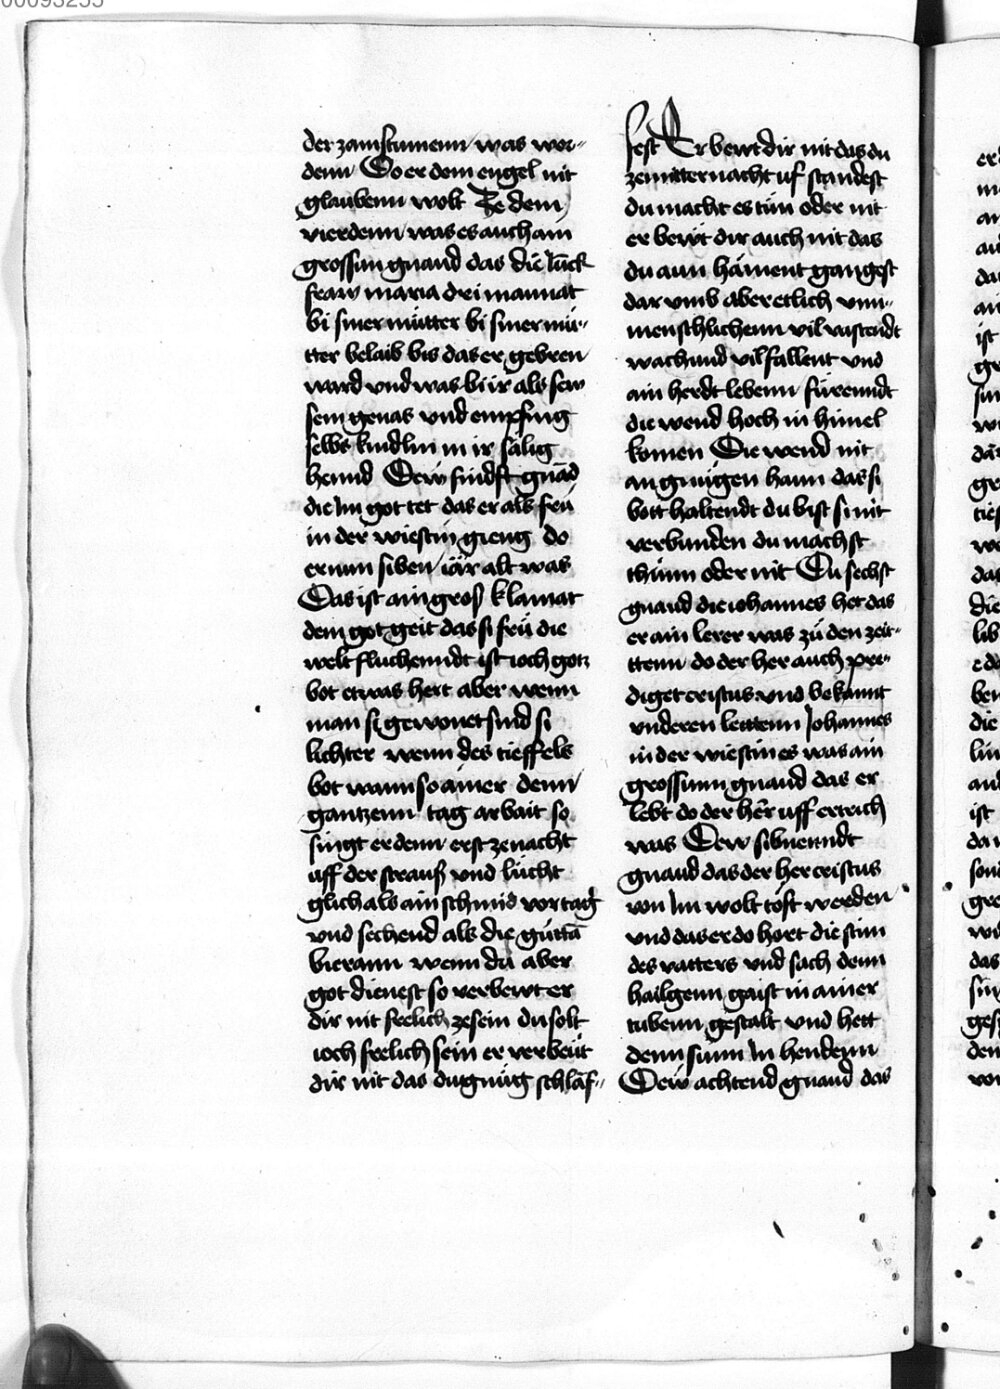 der zam stumenn was wor-
denn Do er dem engel nit
glaubenn wolt Ze dem
vierdenn was es auch ain
grossun gnaud das die lück
fraw maria dri mannat
bi siner mütter bi siner mü-
tter belaib bis das er gebren
ward vnd was bi ir als sew
sein genas vnd empfing
selbs kindlin in ir sälig
hennd Dew fündft gnäd
die im got tet das er als frü
in der wiestin gieng do
er nun siben iär alt was
Das ist ain gros klainat
dem got geit das si frü die
welt fluchenndt ist ioch gotz
bot etwas hert aber wenn
man si gewonet sind si
lichter wenn des tieffels
bot wann so ainer denn
gantzenn tag arbait so
singt er denn erst ze nacht
uff der strauß vnd lücht
glich als ain schmid vor tag
vnd sechend als die gütta
bierann wenn du aber
got dienest so verbewt er
dir nit frelich ze sein du solt
ioch frelich sein er verbeüt
dir nit das du gnüg schläf-
fest Er bewt dir nit das du
ze mitternacht uf standest
du macht es tün oder nit
er bewt dir auch nit das
du ann häment gangest
dar vmb aber etlich vnn-
menschlichenn vil vastendt
wachund vil fallent vnd
ain herdt lebenn fürenndt
die wend hoch in himel
komen Die wend nit
an gnügen hann das si
bott haltendt du bist si nit
verbunden du machst
thünn oder nit Du sechst
gnaud die iohannes het das
er ain lerer was zü den zeit-
ttenn do der her auch pre-
diget cristus vnd bekannt
vnderen leutenn Johannes
in der wiestin es was ain
grossunn gnaud das er
lebt do der her uff ertrich
was Dew sibnenndt
gnaud das der her cristus
von Im wolt töft werden
vnd das er do hort die stim
des vatters vnd sach denn
hailgenn gaist in ainer
tubenn gestalt vnd hett
denn sunn In hendenn
Dew achtend gnaud das